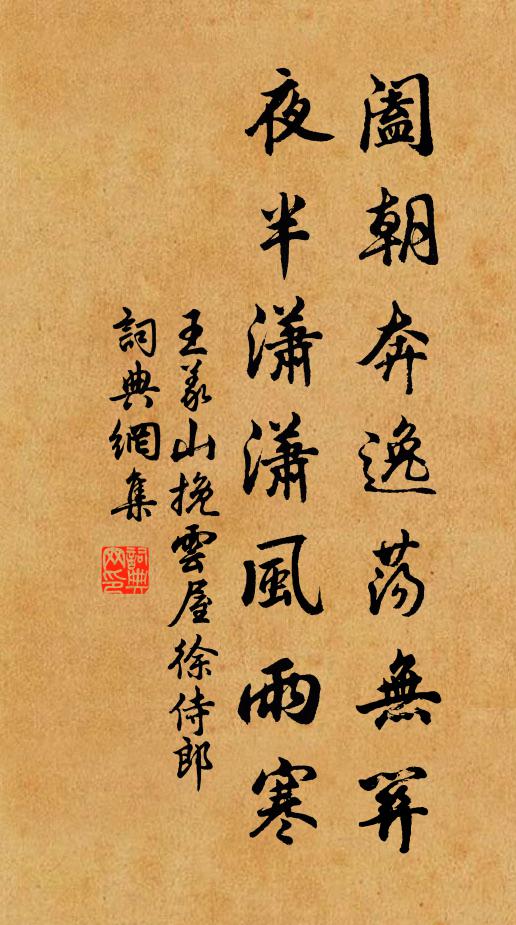 闔朝奔逸蕩無關
夜半瀟瀟風雨寒
王義山挽雲屋徐侍郎
詞典網集
詞典網印